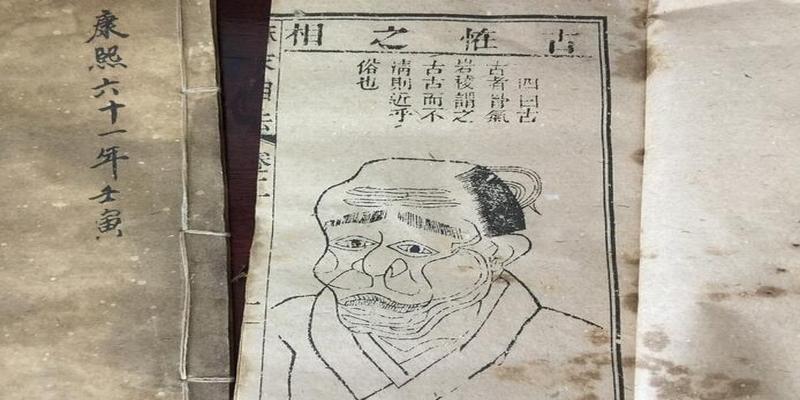 古恠之相
四曰古
古者骨氣
岩稜謂之
古古而不
清則近乎
俗也
康熙六十一年壬寅